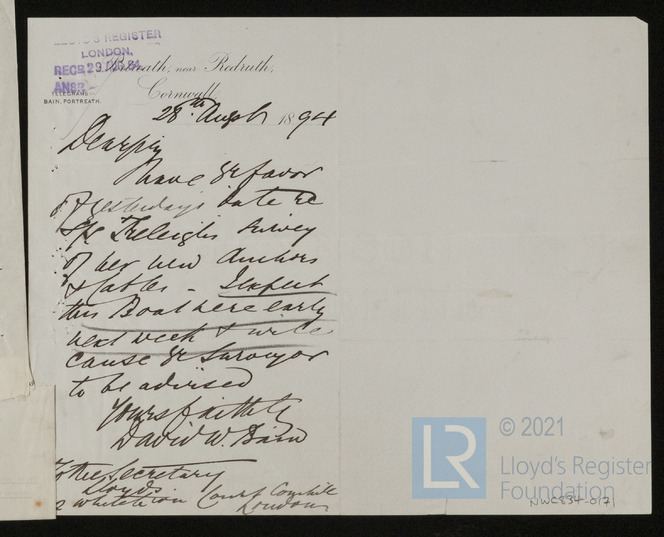 LLOYD'S REGISTER
LONDON.
RECD 29 AUG 94
ANSD
Portreath, near Redruth,
Cornwall
TELEGRAMS
BAIN, PORTREATH.
28th Augst 1894
Dear Sir
I have yr favor
of yesterday's date re
S/S Treleigh's survey
of her new Anchors
& Cables - I expect
this Boat here early
next week & will
cause yr Surveyor
to be advised
Yours faithfly
David W. Bain
To the Secretary
Lloyds
2 White Lion Court Cornhill
London
LR
© 2021
Lloyd's Register
Foundation
NWC834-0171